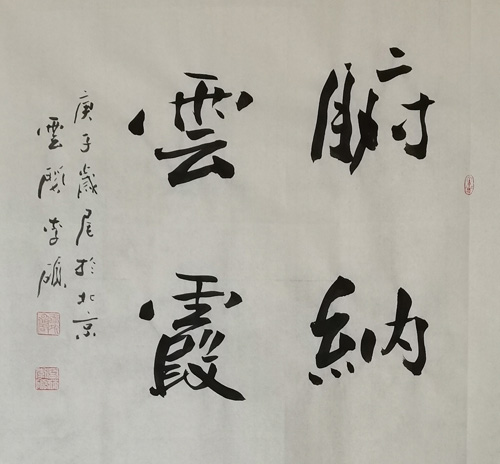 納
雲霞
庚子歲尾於北京
雲李碩